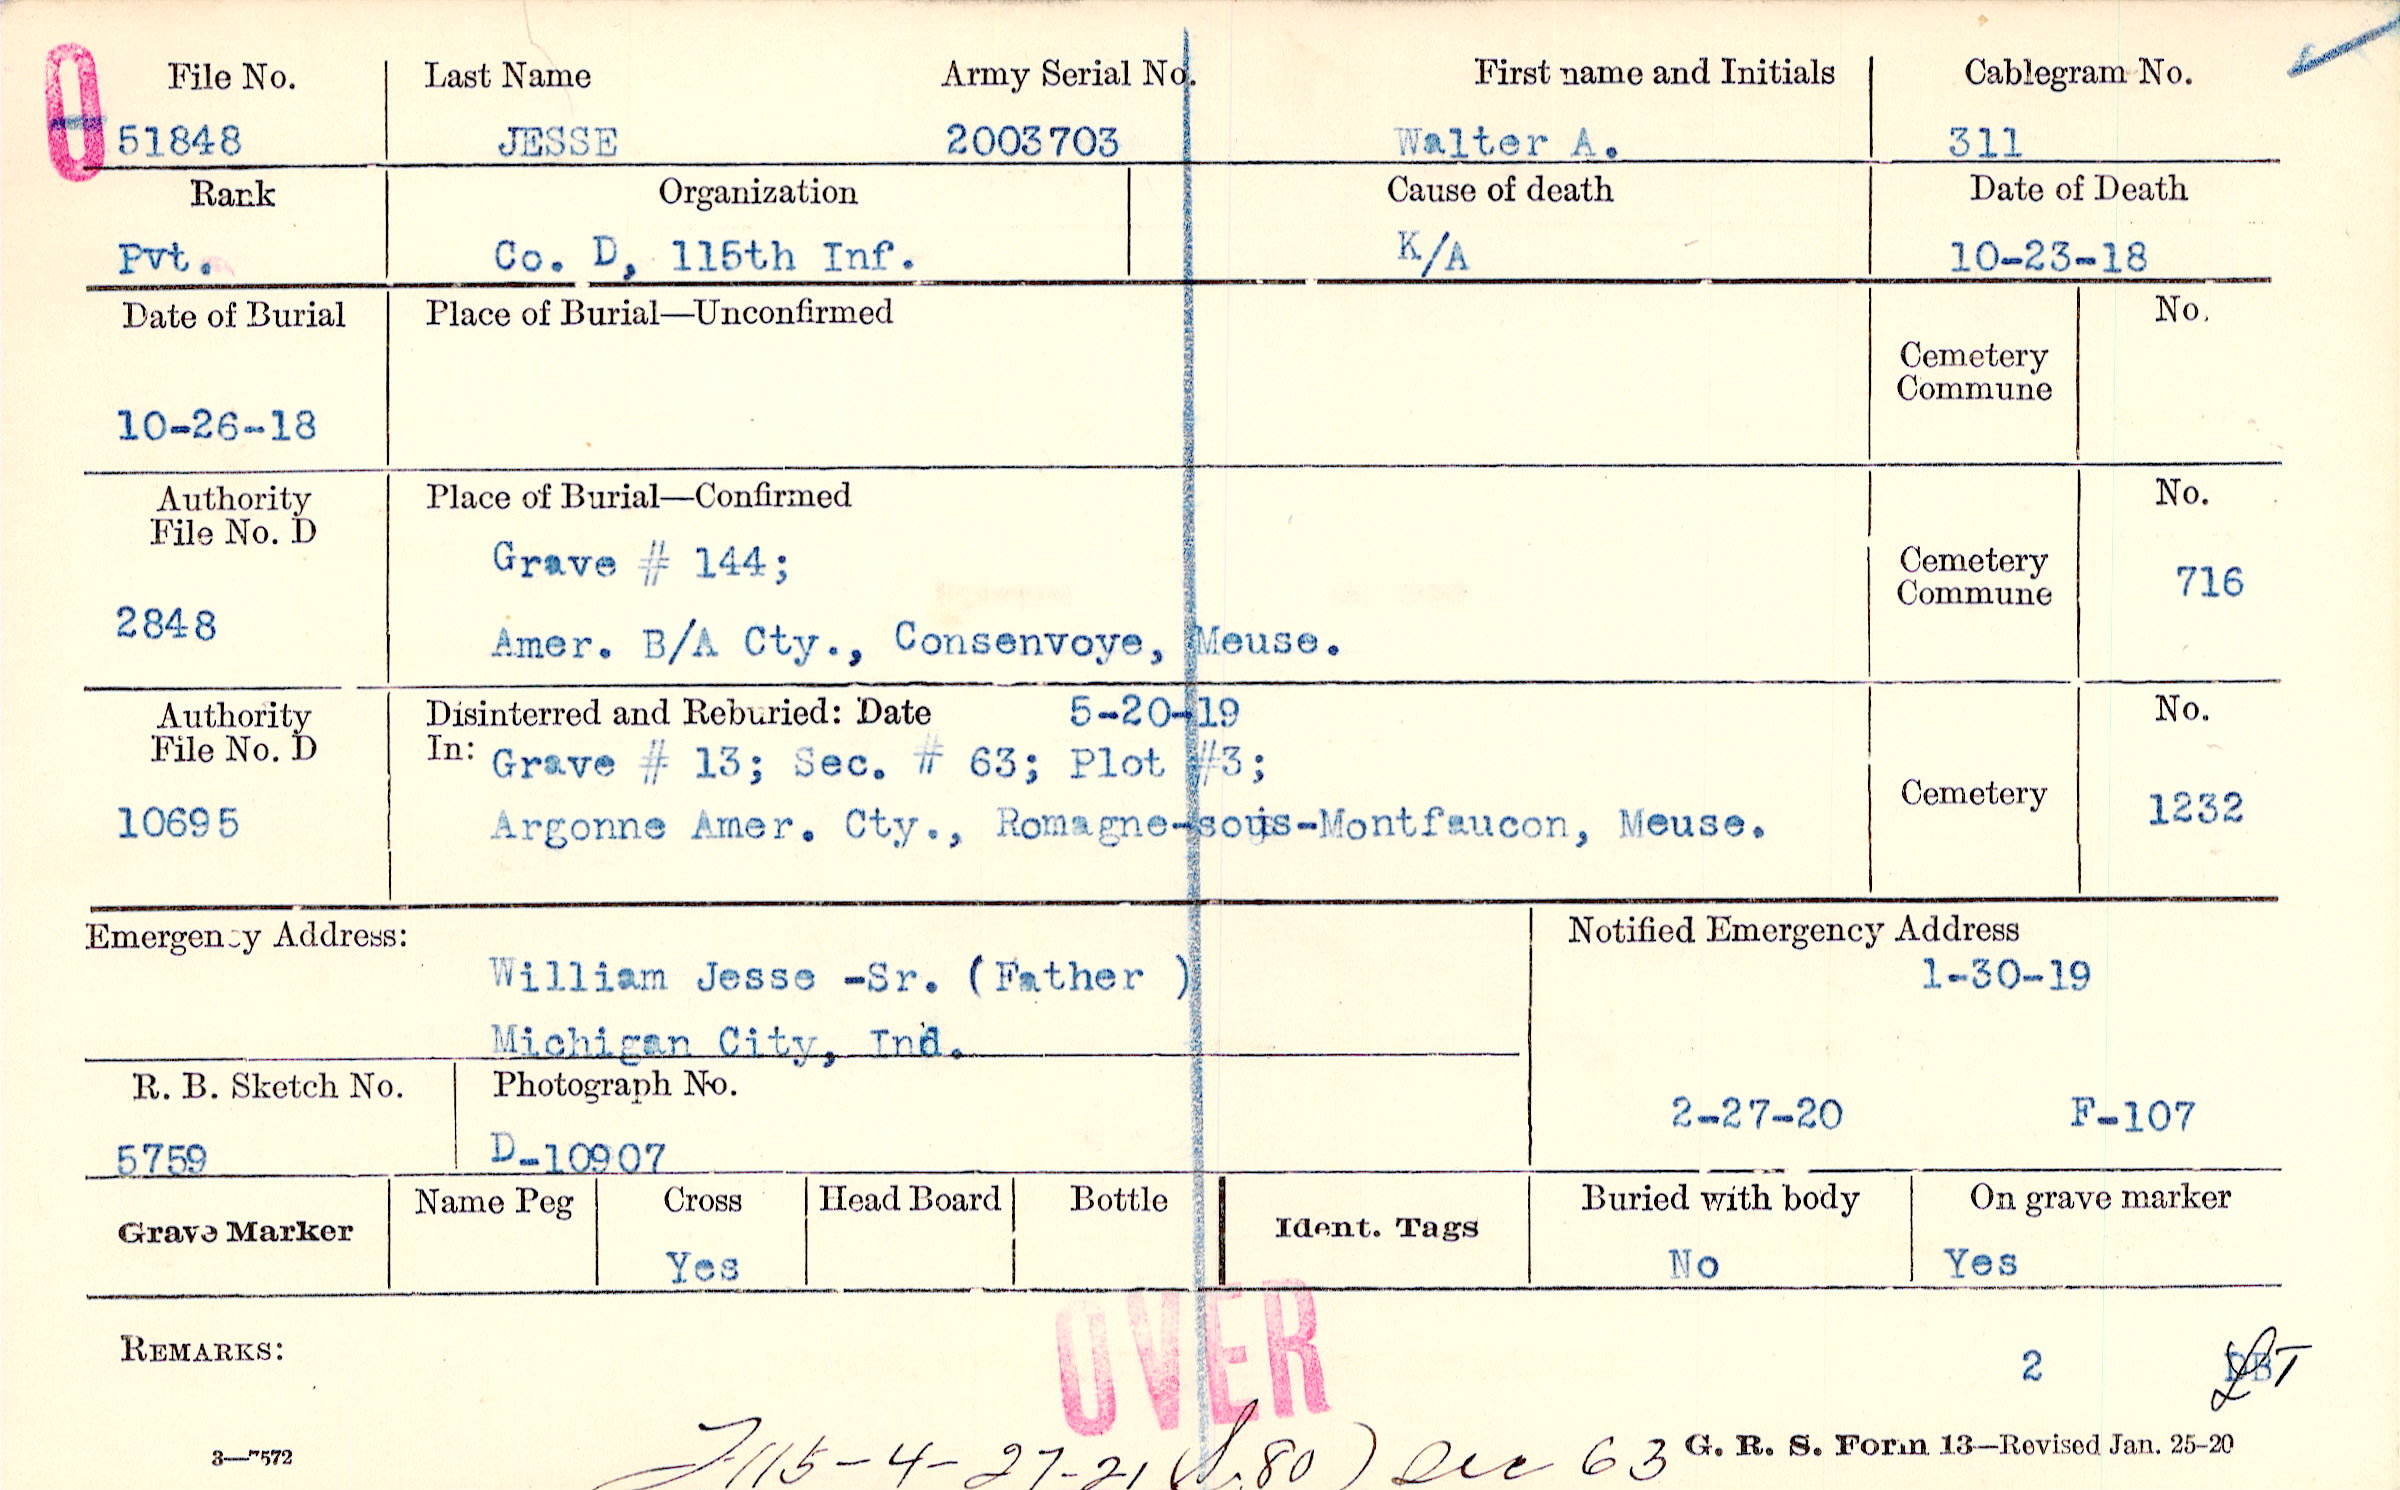 File No. Last Name Army Serial No. First name and Initials Cablegram No.
0 51848 JESSE 2003703 Walter A. 311
Rank Organization Cause of death Date of Death
Pvt. Co. D, 115th Inf. K/A 10-23-18
Date of Burial Place of Burial—Unconfirmed No.
Cemetery
Commune
10-26-18
Authority Place of Burial—Confirmed No.
File No. D
Grave # 144;
Cemetery
Commune 716
2848
Amer. B/A Cty., Consenvoye, Meuse.
Authority Disinterred and Reburied: Date 5-20-19 No.
File No. D In: Grave # 13; Sec. # 63; Plot #3;
Cemetery
10695 Argonne Amer. Cty., Romagne-sous-Montfaucon, Meuse. 1232
Emergency Address: Notified Emergency Address
William Jesse -Sr. (Father ) 1-30-19
Michigan City, Ind.
R. B. Sketch No. Photograph No.
2-27-20 F-107
5759 D-10907
Name Peg Cross Head Board Bottle Buried with body On grave marker
Grave Marker Ident. Tags
Yes No Yes
OVER
REMARKS: 2
3—7572 G. R. S. Form 13—Revised Jan. 25-20
115-4-27-21 63